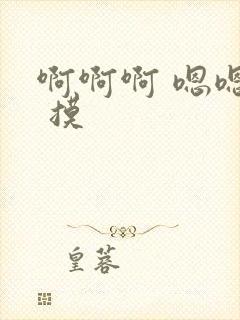 啊啊啊 嗯嗯
摸
皇蓉